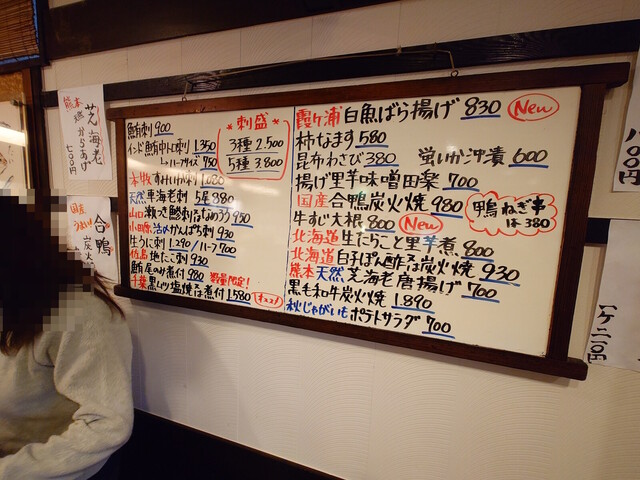 熊本
芝海老
からあげ
七〇〇円
国産
合鴨
炭火
鮪刺 900
インド鮪中トロ刺 1.350
↳ハーフサイズ 750
* 刺盛 *
3種 2.500
5種 3.800
1.020
天然 車海老刺 5尾 880
山口 鯵刺 なめろう 950
小田原 活〆かんぱち刺 930
生うに刺 1.290/ハーフ 700
佐島 地たこ刺 930
鮪尾のみ煮付 980 数量限定!
千葉 黒ムツ塩焼又は煮付 1.580 オススメ
霞ヶ浦 白魚ばら揚げ 830 New
柿なます 580
昆布わさび 380 蛍いか沖漬 600
揚げ里芋味噌田楽 700
国産 合鴨炭火焼 980
鴨ねぎ串
1本 380
牛すじ大根 800 New
北海道 生たらこと里芋煮 800
北海道 白子ぽん酢又は炭火焼 930
熊本 天然芝海老唐揚げ 700
黒毛和牛炭火焼 1.890
秋じゃがいも ポテトサラダ 700
一ケ二二〇円